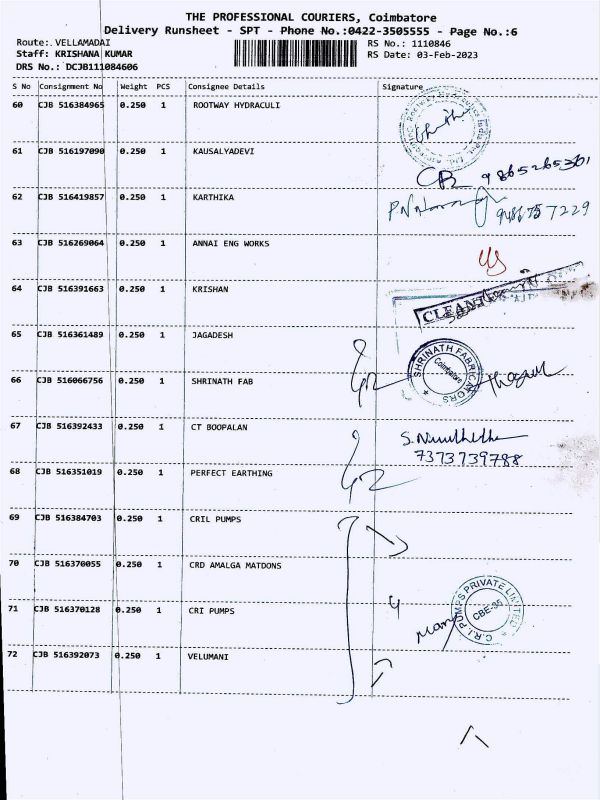 THE PROFESSIONAL COURIERS, Coimbatore
Delivery Runsheet - SPT - Phone No.:0422-3505555 - Page No.:6
Route: VELLAMADAI
RS No.: 1110846
Staff: KRISHANA KUMAR
RS Date: 03-Feb-2023
DRS No.: DCJB111084606
S No Consignment No Weight PCS Consignee Details Signature
60 CJB 516384965 0.250 1 ROOTWAY HYDRACULI
61 CJB 516197090 0.250 1 KAUSALYADEVI
9865265301
62 CJB 516419857 0.250 1 KARTHIKA
9486757229
63 CJB 516269064 0.250 1 ANNAI ENG WORKS
64 CJB 516391663 0.250 1 KRISHAN
65 CJB 516361489 0.250 1 JAGADESH
SHRINATH FABRICATORS
Coimbatore
66 CJB 516066756 0.250 1 SHRINATH FAB
67 CJB 516392433 0.250 1 CT BOOPALAN
7373739788
68 CJB 516351019 0.250 1 PERFECT EARTHING
69 CJB 516384703 0.250 1 CRIL PUMPS
70 CJB 516370055 0.250 1 CRD AMALGA MATDONS
71 CJB 516370128 0.250 1 CRI PUMPS
C.R.I. PUMPS PRIVATE LIMITED
CBE-35
72 CJB 516392073 0.250 1 VELUMANI